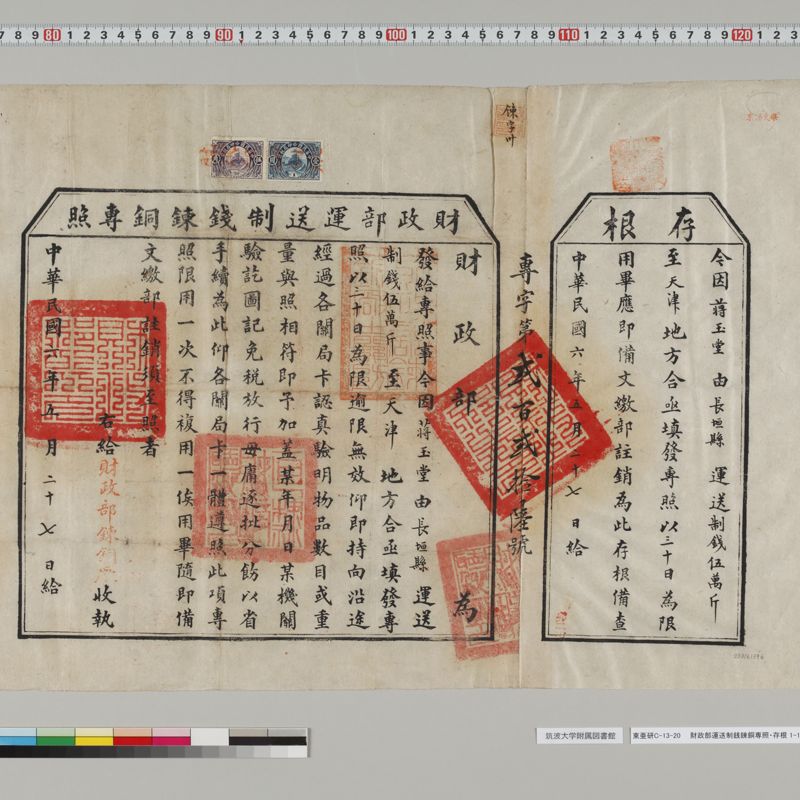 存根
令因蔣玉堂由長垣縣運送制錢伍萬斤
至天津地方合亟填發專照以三十日為限
用畢應即備文繳部註銷為此存根備查
中華民國六年五月二十七日給
專字第貳百貳拾陸號
錬字叶
財政部運送制錢錬銅專照
財政部為
發給專照事令因蔣玉堂由長垣縣運送
制錢伍萬斤至天津地方合亟填發專
照以三十日為限逾限無效仰即持向沿途
經過各關局卡認真驗明物品數目或重
量與照相符即予加蓋某年月日某機關
驗訖圖記免稅放行毋庸逐批分飭以省
手續為此仰各關局卡一體遵照此項專
照限用一次不得複用一俟用畢隨即備
文繳部註銷須至照者
右給財政部錬銅廠收執
中華民國六年五月二十七日給
筑波大学附属図書館
東亜研C-13-20 財政部運送制銭錬銅専照・存根 1-1